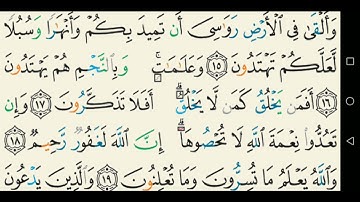 وَأَلْقَىٰ فِي الْأَرْضِ رَوَاسِيَ أَن تَمِيدَ بِكُمْ وَأَنْهَارًا وَسُبُلًا
لَّعَلَّكُمْ تَهْتَدُونَ ١٥ وَعَلَامَاتٍ ۚ وَبِالنَّجْمِ هُمْ يَهْتَدُونَ
١٦ أَفَمَن يَخْلُقُ كَمَن لَّا يَخْلُقُ ۗ أَفَلَا تَذَكَّرُونَ ١٧ وَإِن
تَعُدُّوا نِعْمَةَ اللَّهِ لَا تُحْصُوهَا ۗ إِنَّ اللَّهَ لَغَفُورٌ رَّحِيمٌ ١٨
وَاللَّهُ يَعْلَمُ مَا تُسِرُّونَ وَمَا تُعْلِنُونَ ١٩ وَالَّذِينَ يَدْعُونَ